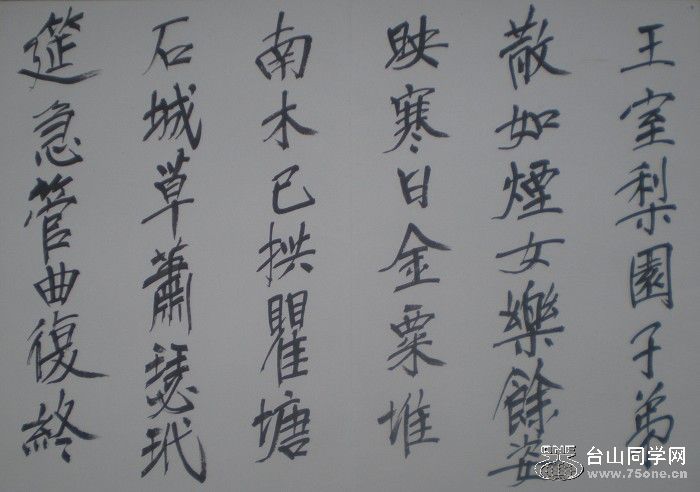 王室梨園子弟
散如煙女樂餘姿
映寒日金粟堆
南木已拱瞿塘
石城草蕭瑟玳
筵急管曲復終
ONE
台山同学网
www.75one.cn